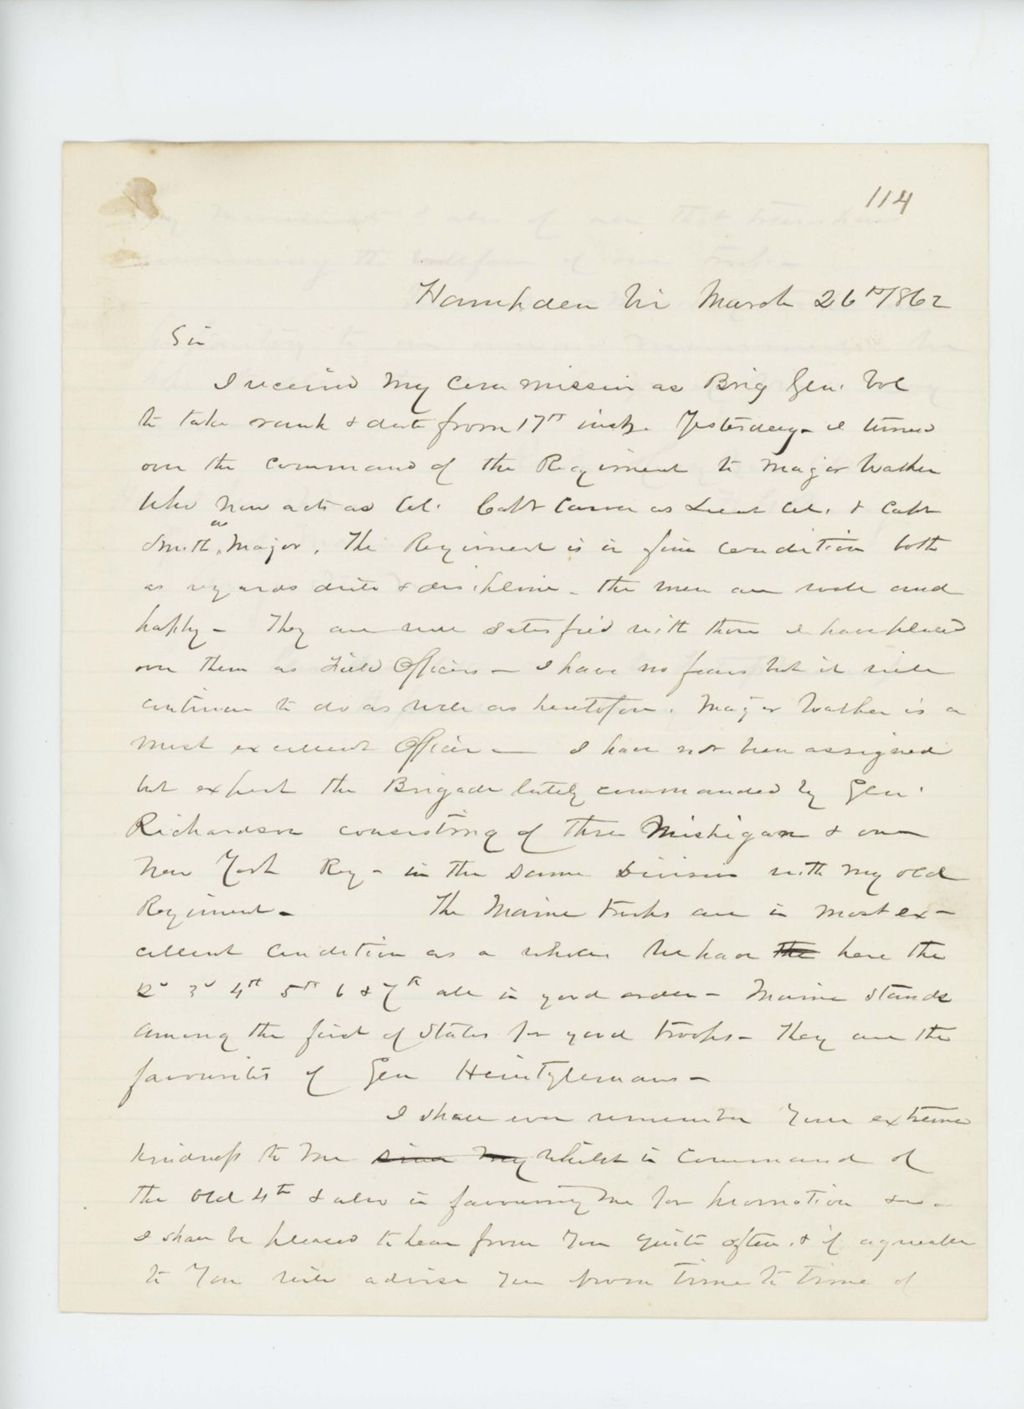 114
Hampden Va March 26th/862
Sir
I received My Commission as Brig Gen. Vol
to take rank & date from 17th inst. Yesterday - I turned
over the command of the Regiment to Major Walker
who now acts as Col. Capt Carver as Lieut Col. & Capt
Smith as Major. The Regiment is in fine condition both
as regards drill & discipline - the men are well and
happy - They are well satisfied with those I have placed
over them as Field Officers - I have no fears but it will
continue to do as well as heretofore. Major Walker is a
most excellent Officer - I have not been assigned
but expect the Brigade lately commanded by Gen.
Richardson consisting of three Mishigan & one
New York Reg - in the same Division with my old
Regiment - The Maine troops are in most ex-
cellent condition as a whole. We have the here the
2d 3d 4th 5th 6 & 7th all in good order - Maine stands
among the first of States for good troops - They are the
favourites of Gen Heintzlemans -
I shall ever remember Your extreme
kindness to me since my whilst in command of
the Old 4th & also in favouring me for promotion &c -
I shall be pleased to hear from You quite often, & if agreeable
to You will advise You from time to time of